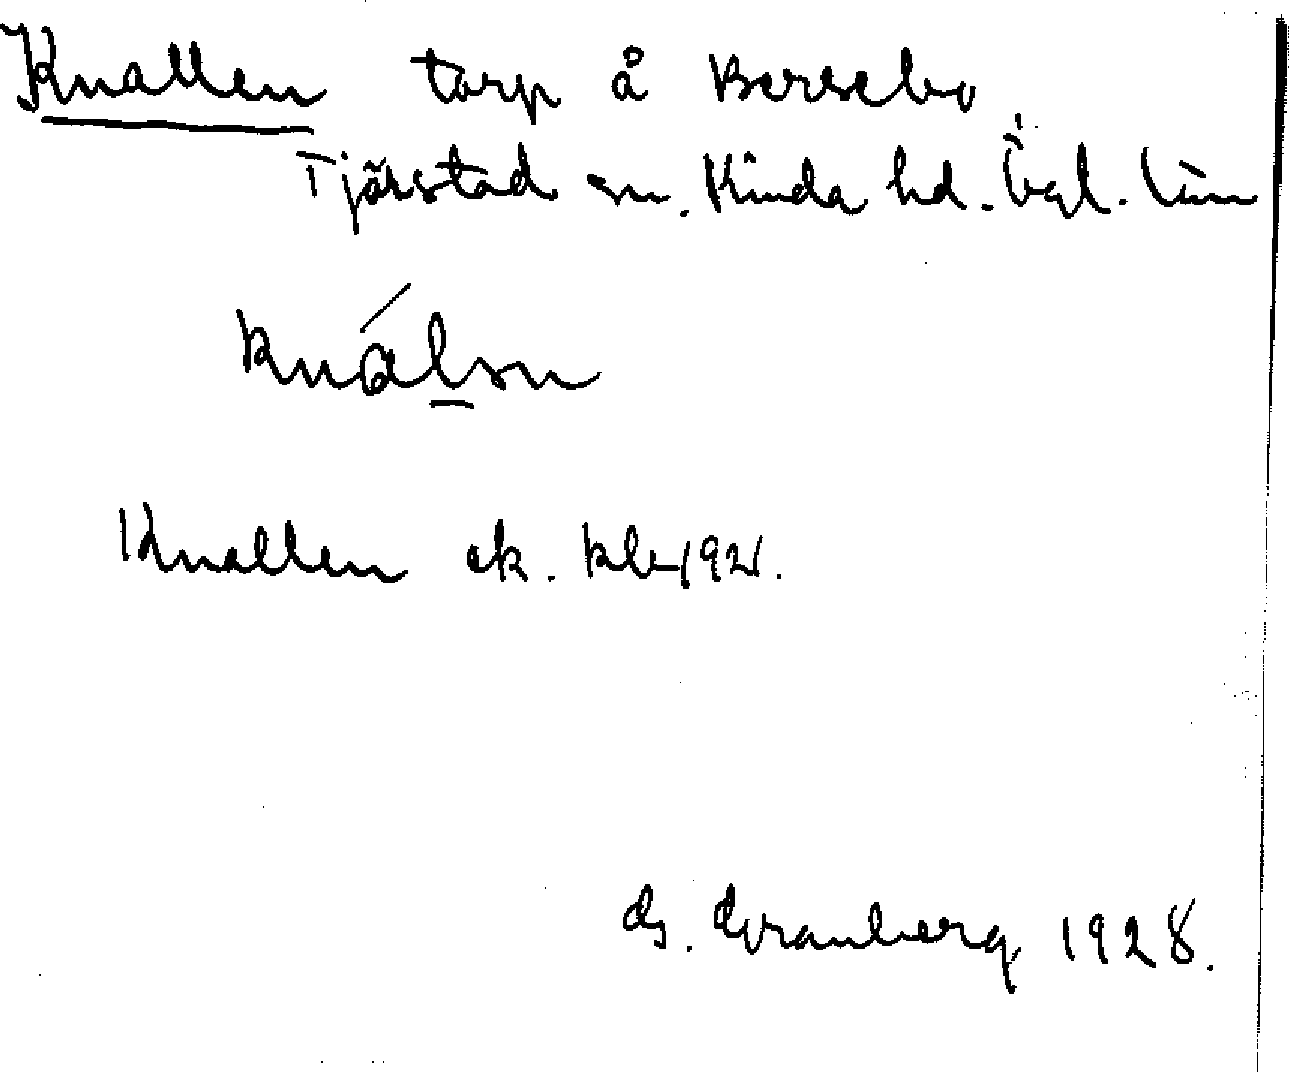 Knallen torp å Bersebo
Tjärstad sn. Kinda hd. Ögl. län
knálsn
Knallen ek. kbl 1921.
G. Granberg 1928.